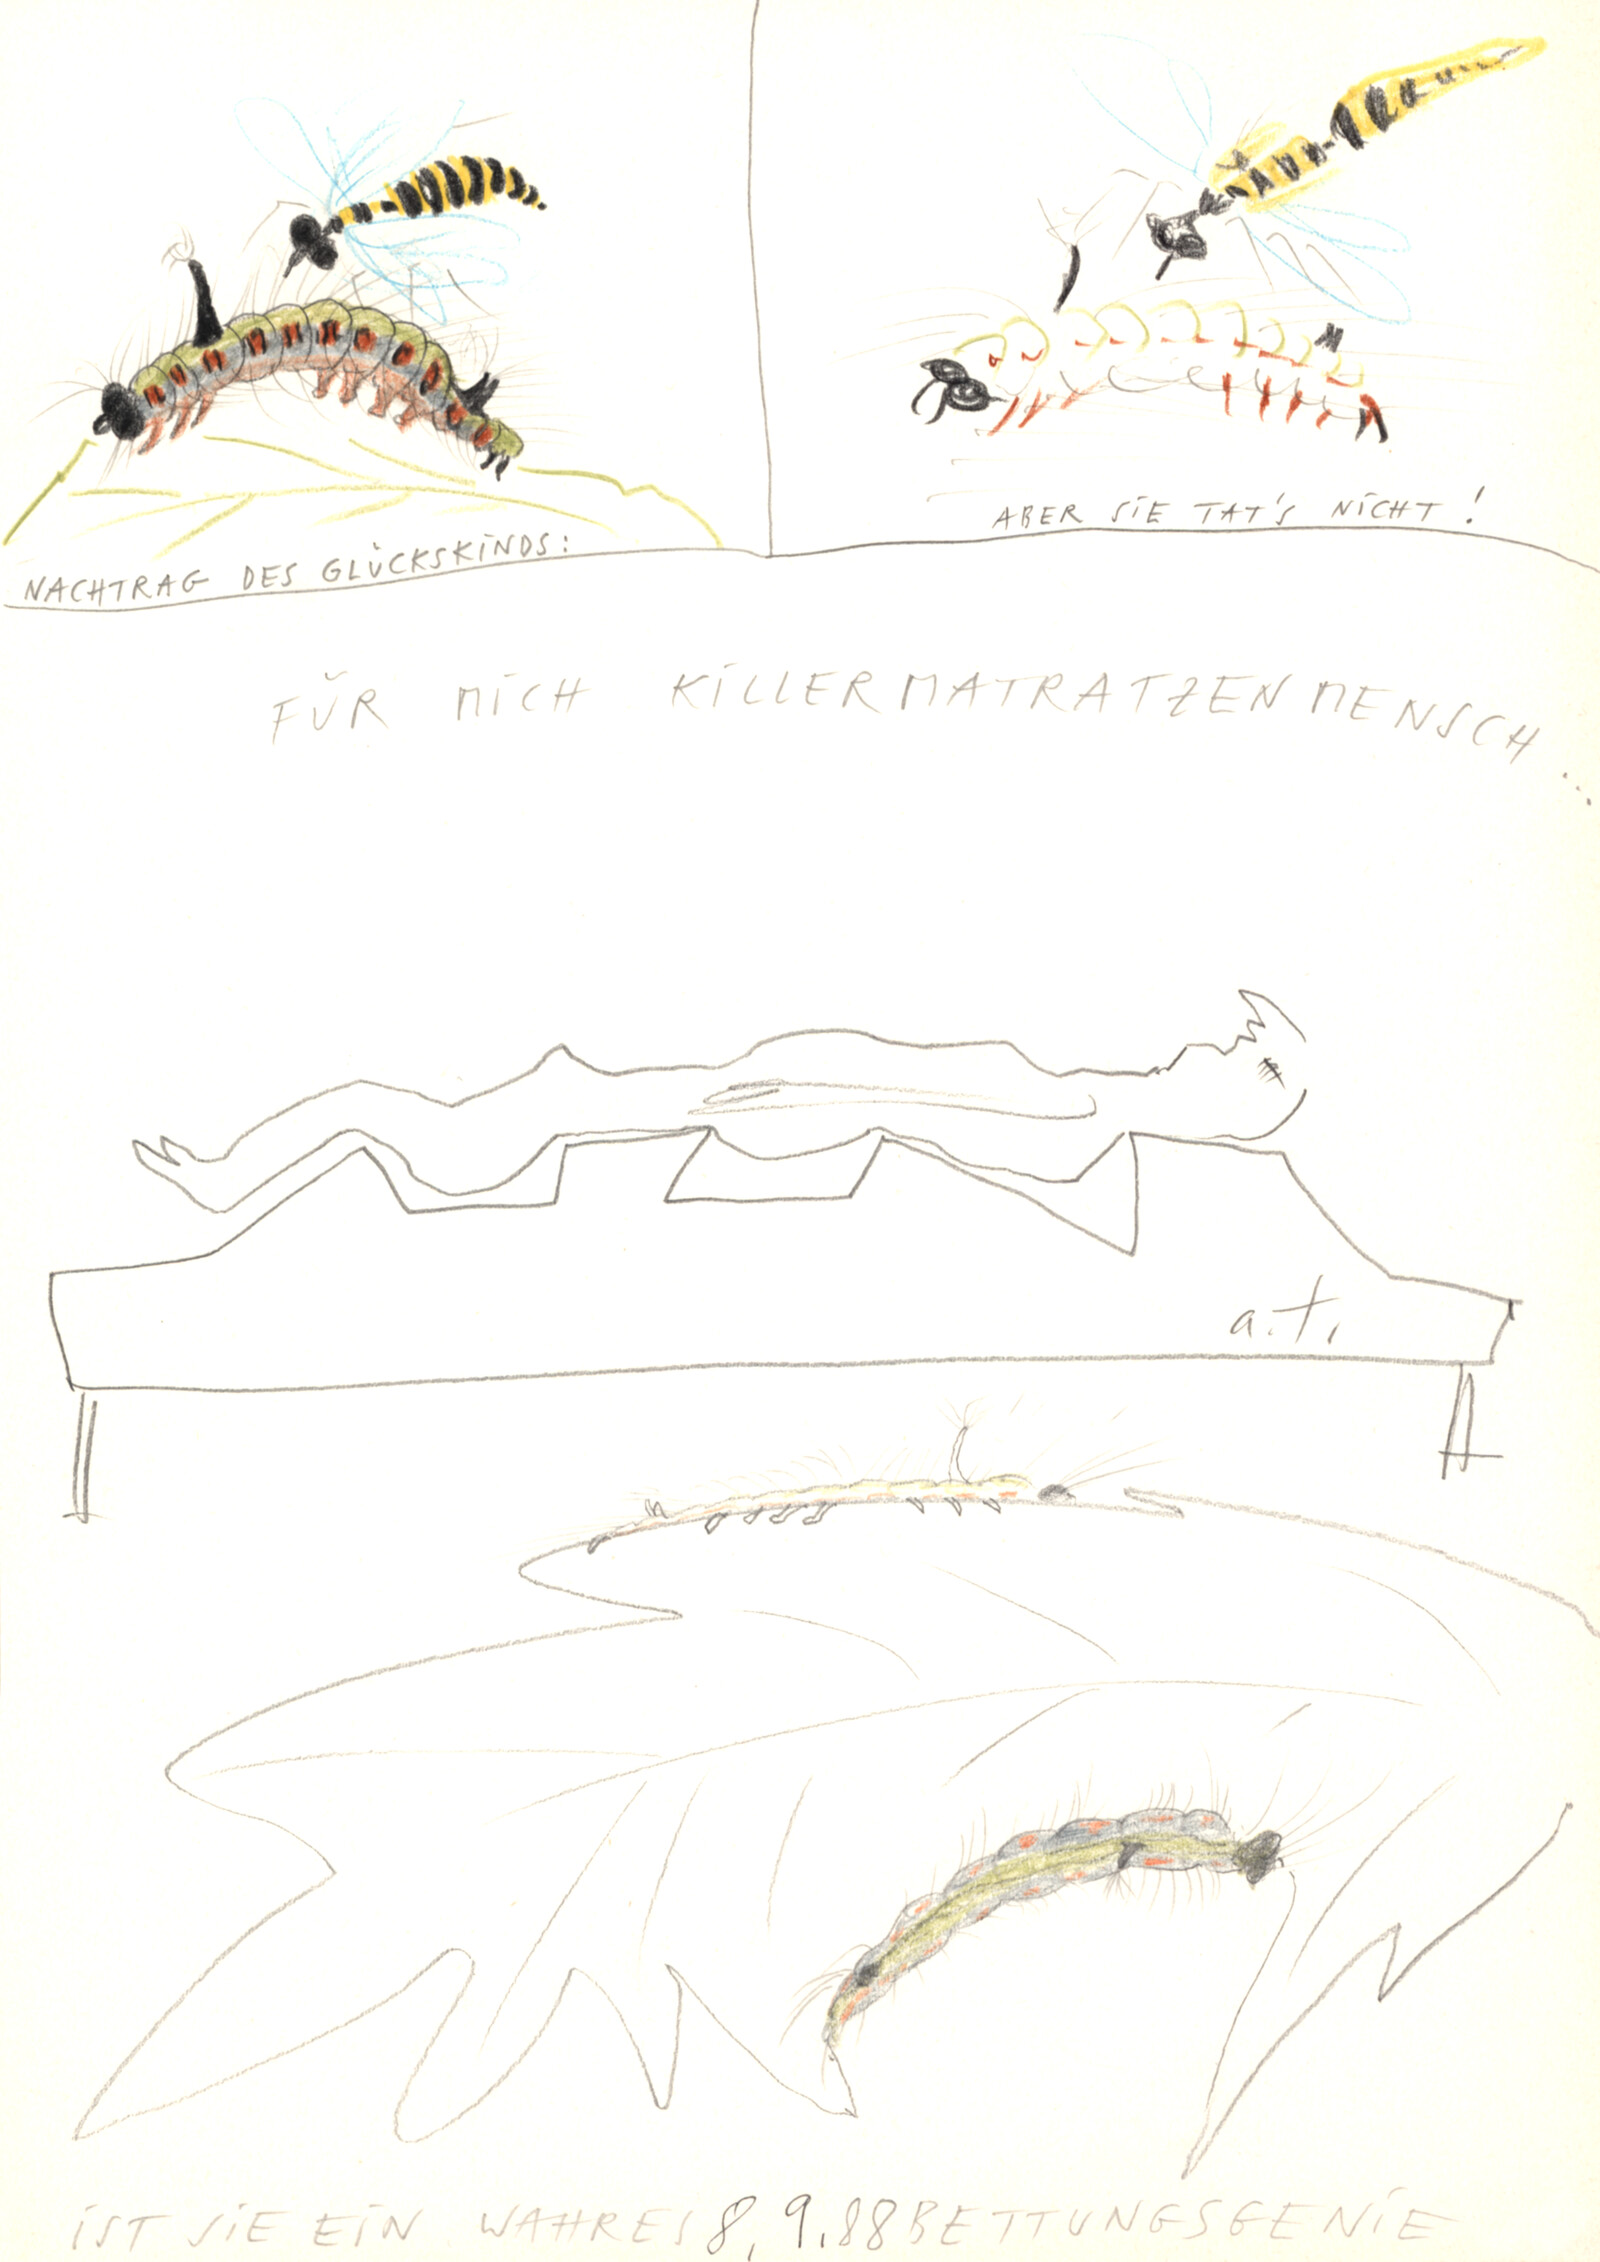 NACHTRAG DES GLÜCKSKINDS:
ABER SIE TAT'S NICHT!
FÜR MICH KILLERMATRATZENMENSCH...
a.t.
IST SIE EIN WAHRES 8,9.88 BETTUNGSGENIE